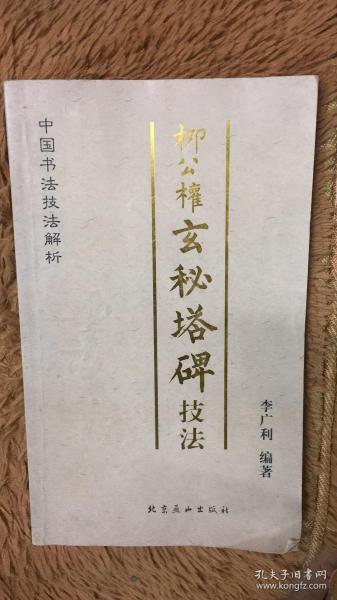 中国书法技法解析
柳公權玄秘塔碑技法
李广利 编著
北京燕山出版社
孔夫子旧书网